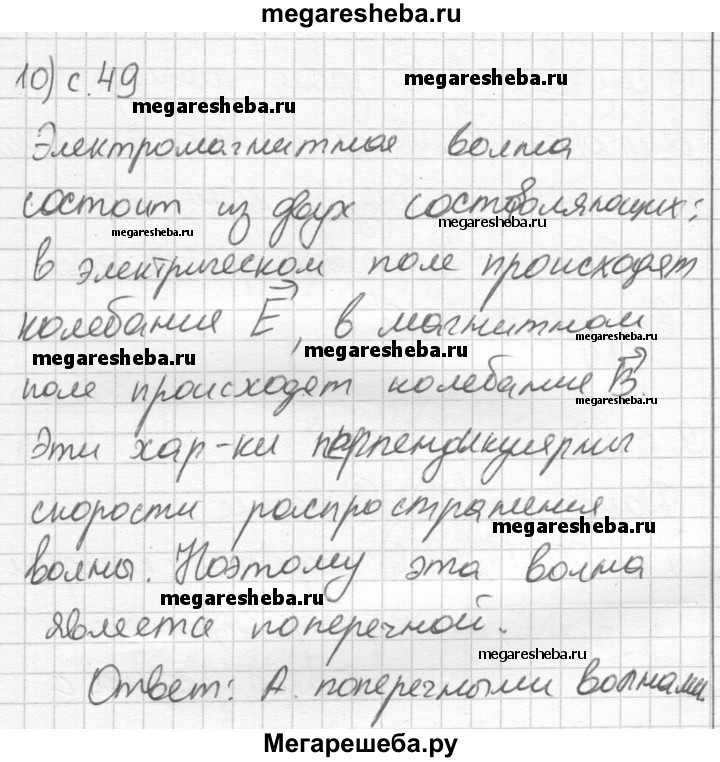 megaresheba.ru
10) с. 49
megaresheba.ru
megaresheba.ru
Электромагнитная волна
состоит из двух составляющих:
megaresheba.ru
megaresheba.ru
в электрическом поле происходят
колебания E⃗, в магнитном
megaresheba.ru
megaresheba.ru
megaresheba.ru
поле происходят колебания B⃗.
megaresheba.ru
Эти хар-ки перпендикулярны
скорости распространения
megaresheba.ru
волны. Поэтому эта волна
megaresheba.ru
является поперечной.
megaresheba.ru
Ответ: А. поперечными волнами.
Мегарешеба.ру